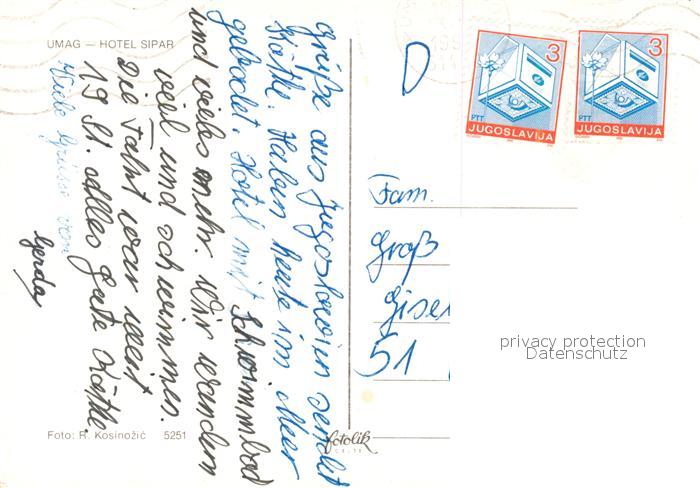 UMAG — HOTEL SIPAR
Grüße aus Jugoslawien sendet
Käthe. Haben heute im Meer
gebadet. Hotel mit Schwimmbad
und vieles mehr. Wir wandern
viel und schwimmen.
Die Fahrt war weit
19 St. alles Gute Käthe.
Viele Grüsse von
Gerda
Foto: R. Kosinožić 5251
fotolik
D
3
PTT
JUGOSLAVIJA
3
PTT
JUGOSLAVIJA
Fam.
Groß
Gisel
51
privacy protection
Datenschutz